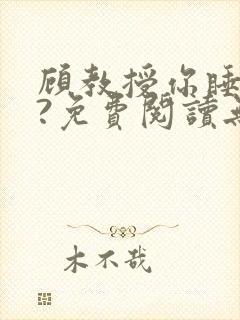 顾教授你睡
?免費閱讀
木不哉